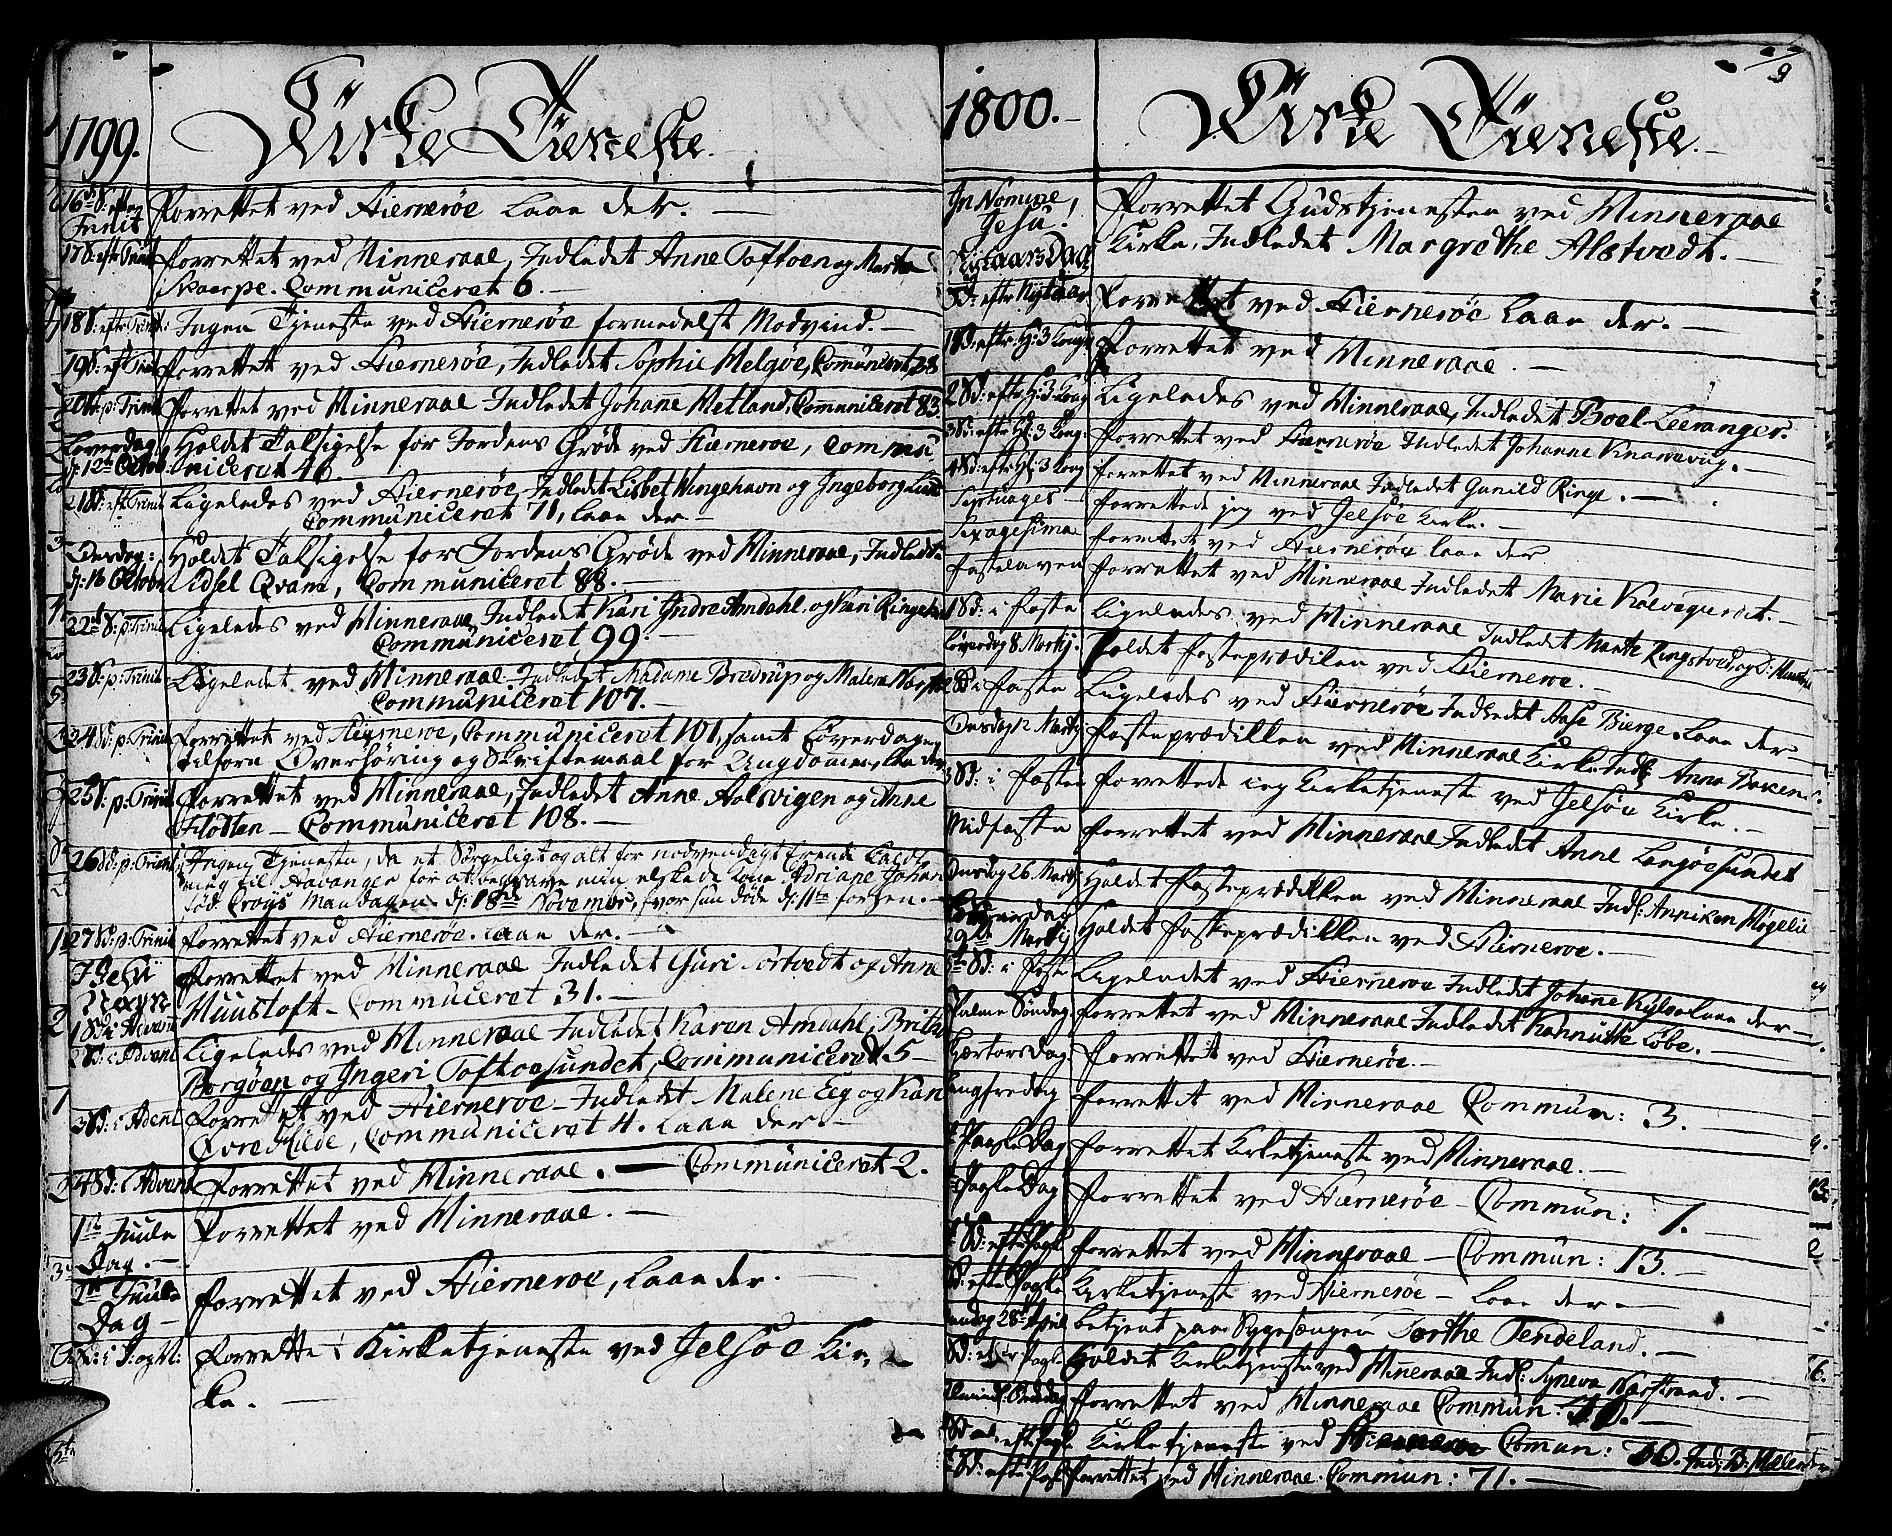 1799. Kirke Tieneste.
16de S. efter Trinit Forrettet ved Hiernerøe laae der. —
17 S: eftr Trinit Forrettet ved Minneraae, Indledet Anne Toftøen og Marta
Skaarpe. Communiceret 6. —
18 S: eftr Trinit: Ingen Tjeneste ved Hiernerøe formedelst Modvind. —
19 S: eft Trinit Forrettet ved Hiernerøe, Indledet Sophie Melgøe, Communiceret 28
20 S: p: Trinit Forrettet ved Minneraae Indledet Johane Metland, Communiceret 83
Løverdag Holdet Taksigelse for Jordens Grøde ved Hiernerøe, commu
d: 12te Octob. niceret 46.
21 S: eft Trinit Ligeledes ved Hiernerøe, Indledet Lisbet Wingehavn og Ingeborg
Communiceret 71, laae der —
Onsdag: Holdet Taksigelse for Jordens Grøde ved Minneraae, Indledt
d: 16 Octobr Sidsel Qvame, Communiceret 88. —
22de S: p: Trinit Ligeledes ved Minneraae, Indledet Kari Indre Amdahl, og Kari
Communiceret 99. —
23 S: p: Trinit Ligeledet ved Minneraae Indledet Madame Brødrup og Malena
Communiceret 107. —
24 Sd: p: Trinit Forrettet ved Hiernerøe, Communiceret 101, samt Løverdagen
tilforn Overhøring og Skriftemaal for Ungdomen, laae der
25 S: p: Trinit Forrettet ved Minneraae, Indledet Anne Aalsvigen og Anne
Flotten — Communiceret 108. —
26 Sd: p: Trinit Ingen Tjeneste, da et Sørgeligt og alt for nødvendigt Erende kaldte
mig til Stavanger for at begrave min elskede Kone Adriane
fød Crøys Mandagen d: 18de Novembr, hvor hun døde d: 11te forhen. —
27 Sd: p: Trinit Forrettet ved Hiernerøe. laae der. —
I Jesu Forrettet ved Minneraae Indledet Guri og Anne
Nagn Muusloft — Commuceret 31. —
1 Sd: i Advent
2 Sd: i Advent Ligeledes ved Minneraae Indledet Karen Amdahl, Brithe
Borgøen og Ingeri Toftøesundet, Communiceret 5 —
3 Sd: i Advent Forrettet ved Hiernerøe — Indledet Malene Eeg og Kari
Communiceret 4. laae der. —
4 Sd: i Advent Forrettet ved Minneraae. — Communiceret 2.
1te Juule Forrettet ved Minneraae. —
Dag. —
2den Juule Forrettet ved Hiernerøe, laae der.
Dag —
Forrettet Kirketjeneste ved Jelsøe Kir-
ke. —
9
1800. — Kirke Tieneste. —
In Nomine Forrettet Gudstjenesten ved Minneraae
Jesu! Kirke, Indledet Margrethe Alstvedt. —
Nytaars Dag
Sd: eftr Nytaar Forrettet ved Hiernerøe laae der. —
1 Sd: eftr H: 3 Kong Forrettet ved Minneraae. —
2 Sd: eftr H: 3 Kong Ligeledes ved Minneraae, Indledet Boel Leeranger.
3 Sd: eftr H: 3 Kong Forrettet ved Hiernerøe Indledet Johanne Knarrevig. —
4 Sd: eftr H: 3 Kong Forrettet ved Minneraae Indledet Gunild Ringe. —
Septuages Forrettede jeg ved Jelsøe Kirke. —
Sexagesima Forrettet ved Hiernerøe laae der
Fastelaven Forrettet ved Minneraae Indledet Marie —
1 Sd: i Faste Ligeledes ved Minneraae Indledet Marte Ringstved og
Løverdag 8 Martj. Holdet Fasteprædiken ved Hiernerøe. —
2 Sd: i Faste Ligeledes ved Hiernerøe Indledet Aase Bierge. Laae der
Onsdag 12 Martj Fasteprædikken ved Minneraae Kirke Indl: Anna
3 Sd: i Faste Forrettede jeg Kirketjeneste ved Jelsøe Kirke. —
Midfaste Forrettet ved Minneraae Indledet Anne Langøesundet
Onsdag 26 Martj Holdet Fasteprædikken ved Minneraae Indl: Anniken
Løverdag Holdet Fasteprædikken ved Hiernerøe. —
29de Martj
5te Sd: i Faste Ligeledet ved Hiernerøe Indledet Johane laae der —
Palme Søndag Forrettet ved Minneraae Indledet Løbe. —
Skjertorsdag Forrettet ved Hiernerøe. —
Langfredag Forrettet ved Minneraae Commun: 3. —
Paaske Dag Forrettet Kirketjeneste ved Minneraae. —
Paaske Dag Forrettet ved Hiernerøe — Commun: 7. —
1 Sd: eftr Paask Forrettet ved Minneraae — Commun: 13. —
Sd: eftr Paaske Kirketjeneste ved Hiernerøe — laae der —
28de April betjent paa Sygesængen Torthe Tendeland. —
Sd: efter Paaske Holdet Kirketjeneste ved Minneraae Indl: Syneva Narstrand. —
Forrettet ved Minneraae Commun: —
Sd: eft: Paask Kirketjeneste ved Hiernerøe Comun: Ind:
Sd: efter Paask Forrettet ved Minneraae. Commun: 71. —